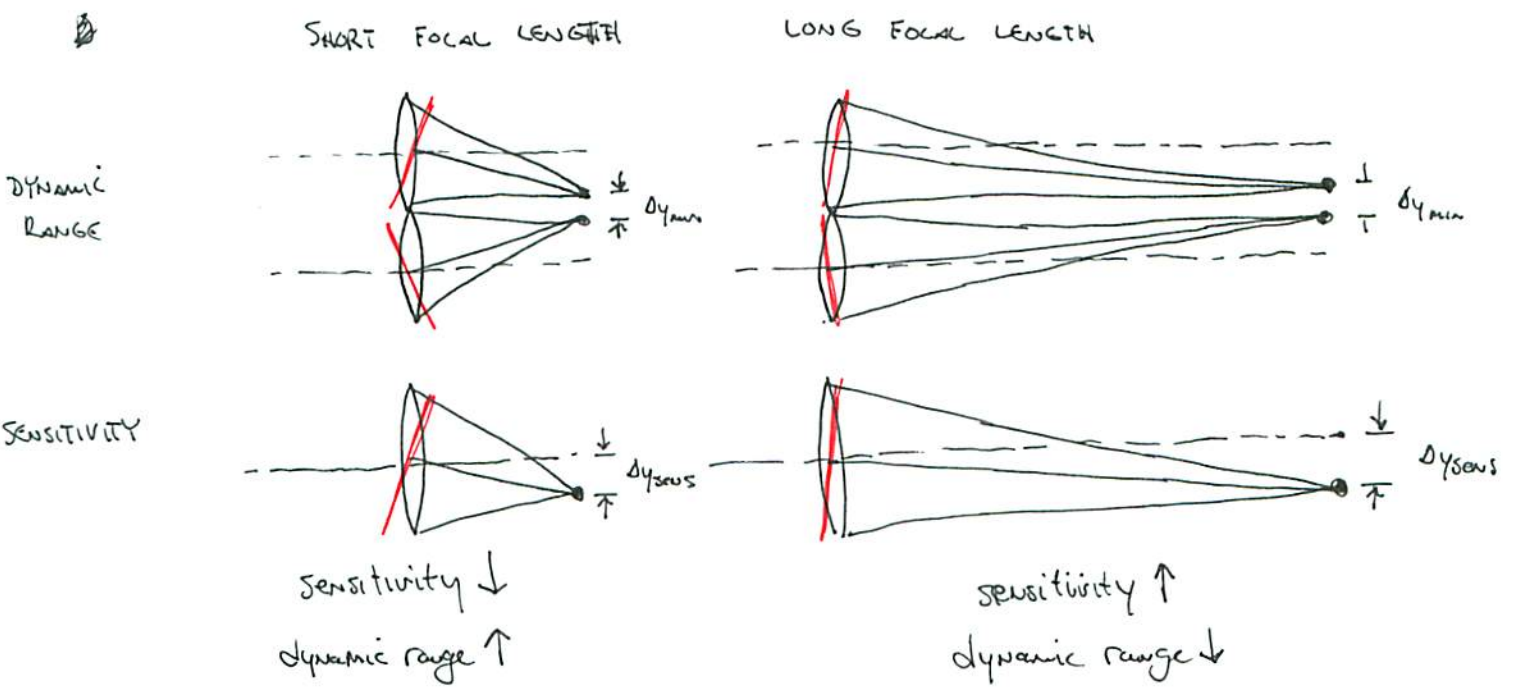 SHORT FOCAL LENGTH
LONG FOCAL LENGTH
DYNAMIC
RANGE
Δy min
Δy min
SENSITIVITY
Δy sens
Δy sens
sensitivity ↓
dynamic range ↑
sensitivity ↑
dynamic range ↓